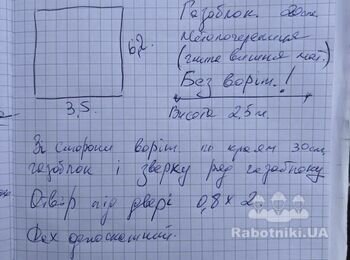 Газоблок 20см.
Металочерепиця
6,2.
Без воріт!
3,5.
Висота 2,5 м.
Зі сторони воріт по краям 30см
газоблок і зверху ряд газоблоку
Отвір під двері 0,8 х 2
Дах односкатний.
Rabotniki.UA